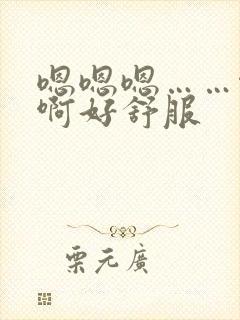 嗯嗯嗯……
啊好舒服
栗元廣